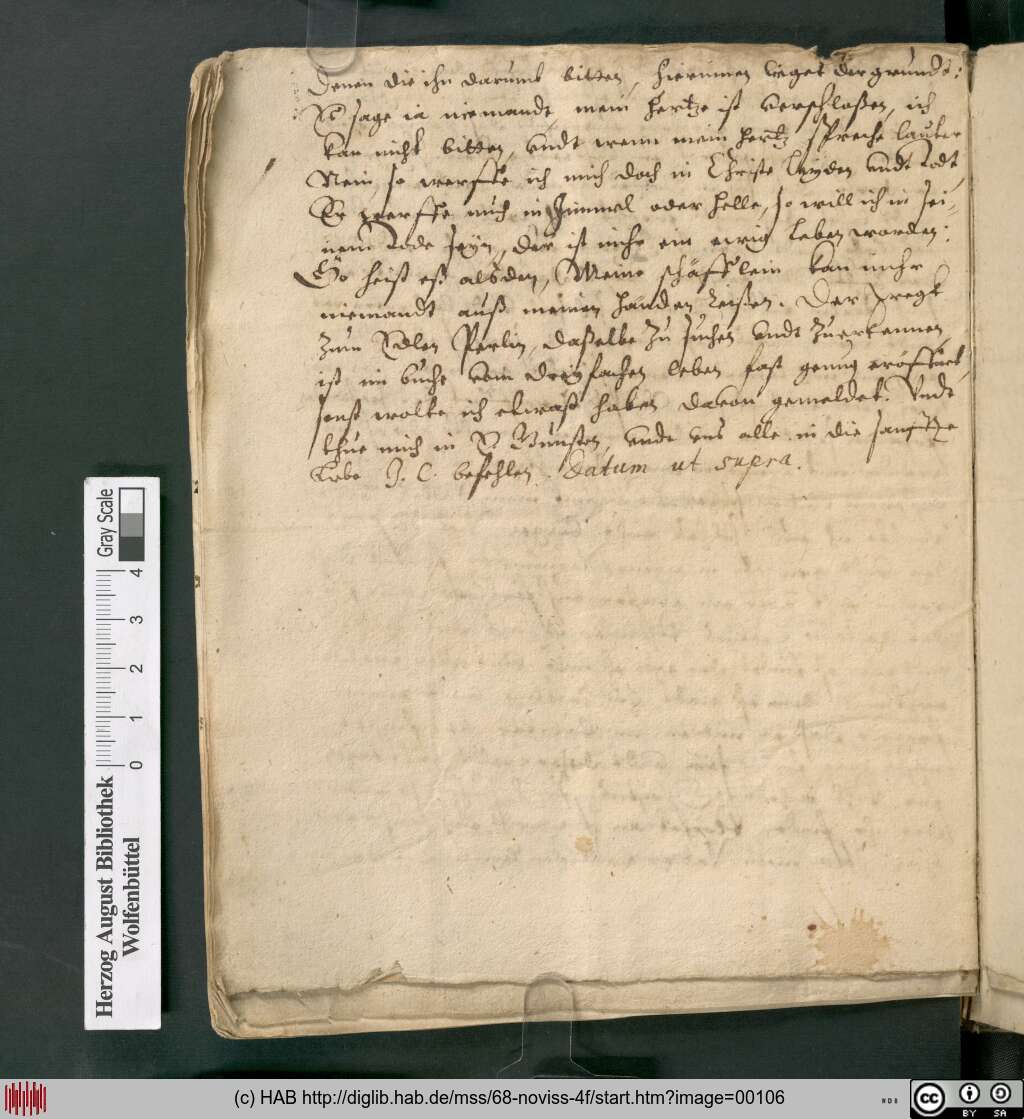 denen die ihn darumb bitten, hierinnen lieget der grundt:
Es sage ia niemandt, mein hertze ist verschloßen, ich
kan nicht bitten, undt wenn mein hertz spreche lauter
Nein so werffe ich mich doch in Christi leyden undt Todt,
Er werffe mich in Himmel oder helle, so will ich in sei-
nem Tode seyn, der ist mihr ein ewig leben worden:
So heist eß alsden, Meine schäfflein kan mihr
niemandt auß meinen händen reißen. Der wegk
zum Edlen Perlin, daßelbe zu suchen undt zuerkennen,
ist im buche vom dreyfachen leben fast genug eröffnet,
sonst wolte ich etwaß haben davon gemeldet. Undt
thue mich in E. Gunsten, undt uns alle in die sanffte
Liebe J. C. befehlen. Datum ut supra.
Gray Scale
0 1 2 3 4
Herzog August Bibliothek
Wolfenbüttel
(c) HAB http://diglib.hab.de/mss/68-noviss-4f/start.htm?image=00106
WDB
CC BY SA